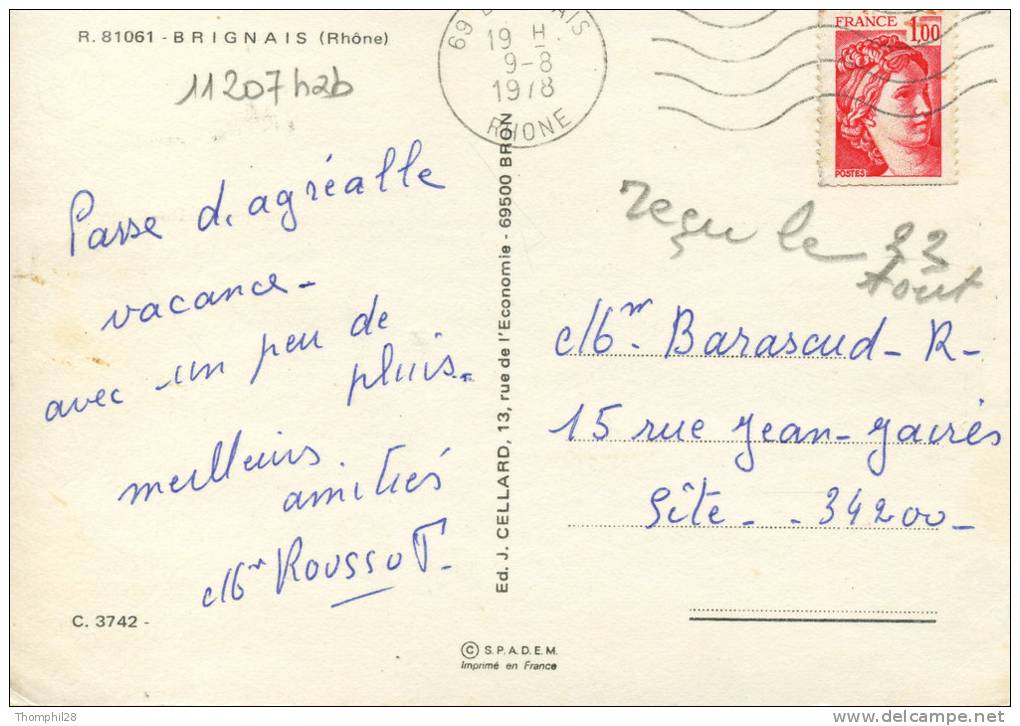 R. 81061 - BRIGNAIS (Rhône)
11207h2b
69 B AIS
19 H.
9-8
1978
RHONE
FRANCE
1,00
POSTES
Passe d'agréable
vacance-
avec un peu de
pluis-
meilleurs.
amitiés
Mr ROUSSOT.
C. 3742 -
Ed. J. CELLARD, 13, rue de l'Economie - 69500 BRON
© S.P.A.D.E.M.
Imprimé en France
reçu le
Aout
Mr. Barascud - R-
15 rue Jean-Jaurés
Sête - - 34200-
Thomphil28
www.delcampe.net